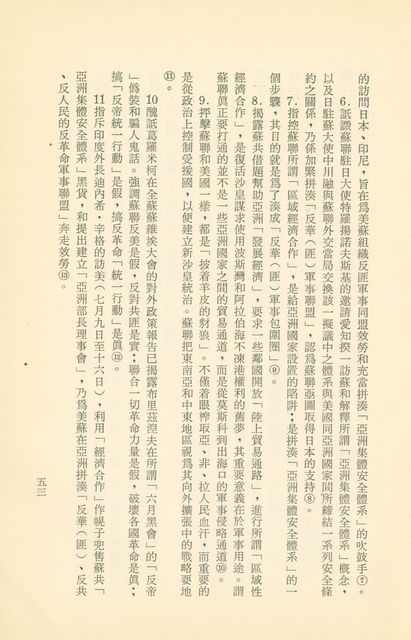 的訪問日本、印尼,旨在爲美蘇組織反匪軍事同盟效勞和充當拼湊「亞洲集體安全體系」的吹鼓手⑦。
6.詆譭蘇聯駐日大使特羅揚諾夫斯基的邀請愛知揆一訪蘇和解釋所謂「亞洲集體安全體系」概念,
以及日駐蘇大使中川融與蘇聯外交當局交換該一擬議中之體系與美國同亞洲國家間所締結一系列安全條
約之關係,乃係加緊拼湊「反華(匪)軍事聯盟」,認爲蘇聯亟圖取得日本的支持⑧。
7.指控蘇聯所謂「區域經濟合作」,是給亞洲國家設置的陷阱;是拼湊「亞洲集體安全體系」的一
個步驟,其目的就是爲了湊成「反華(匪)軍事包圍圈」⑨。
8.揭露蘇共借題幫助亞洲「發展經濟」,要求一些鄰國開放「陸上貿易通路」,進行所謂「區域性
經濟合作」,是復活沙皇謀求使用波斯灣和阿拉伯海不凍港權利的舊夢,其重要意義在於軍事用途。謂
蘇聯眞正要打通的並不是一些亞洲國家之間的貿易通道,而是從莫斯科到出海口的軍事侵略通道⑩。
9.抨擊蘇聯和美國一樣,都是「披着羊皮的豺狼」。不僅着眼榨取亞、非、拉人民血汗,而重要的
是從政治上控制受援國,以便建立新沙皇統治。蘇聯把東南亞和中東地區視爲其向外擴張中的戰略要地
⑪。
10醜詆葛羅米柯在全蘇蘇維埃大會的對外政策報告已揭露布里茲涅夫在所謂「六月黑會」的「反帝
」僞裝和騙人鬼話。強調蘇聯反美是假,反對共匪是實;聯合一切革命力量是假,破壞各國革命是眞;
搞「反帝統一行動」是假,搞反革命「統一行動」是眞⑫。
11指斥印度外長迪內希・辛格的訪美(七月九日至十六日),利用「經濟合作」作幌子兜售蘇共「
亞洲集體安全體系」黑貨,和提出建立「亞洲部長理事會」,乃爲美蘇在亞洲拼湊「反華(匪)、反共
、反人民的反革命軍事聯盟」奔走效勞⑬。
五三